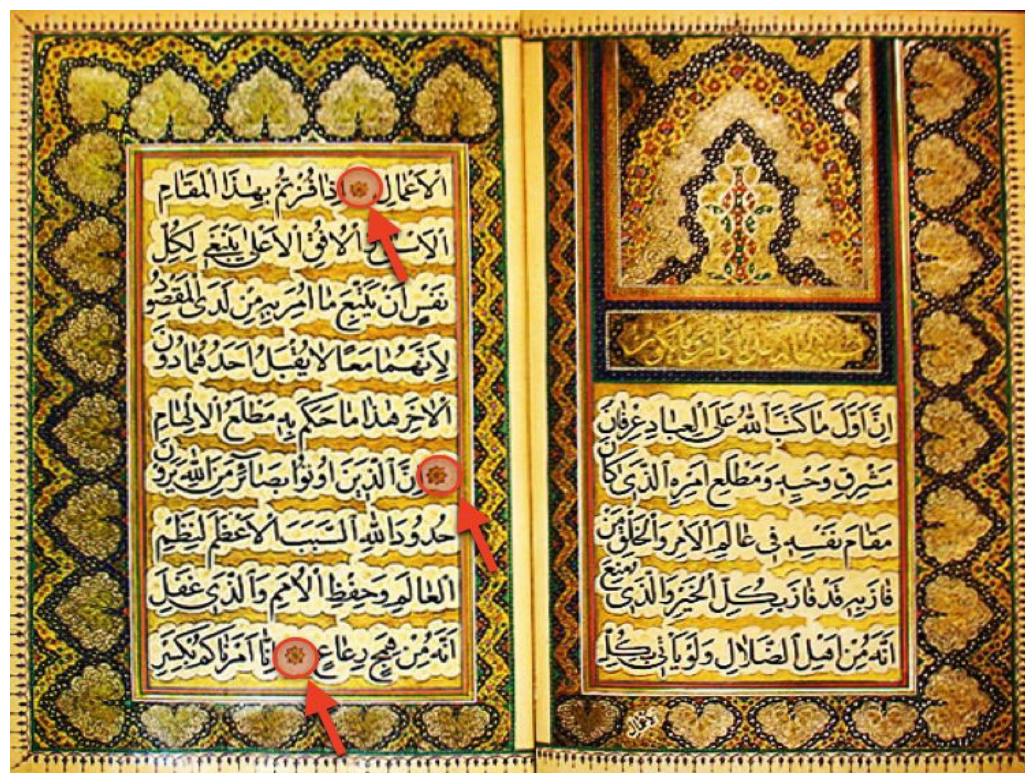 بسمه الحاكم على ما كان وما يكون
انّ اوّل ما كتب الله على العباد عرفان
مشرق وحيه ومطلع امره الّذي كان
مقام نفسه في عالم الامر والخلق من
فاز به قد فاز بكلّ الخير والّذي منع
انّه من اهل الضّلال ولو يأتي بكلّ
الاعمال اذا فزتم بهذا المقام
الاسنى والافق الاعلى ينبغي لكلّ
نفس ان يتّبع ما امر به من لدى المقصود
لانّهما معًا لا يقبل احدهما دون
الاخر هذا ما حكم به مطلع الالهام
انّ الّذين اوتوا بصائر من الله يرون
حدود الله السّبب الاعظم لنظم
العالم وحفظ الامم والّذي غفل
انّه من همج رعاع انّا امرناكم بكسر